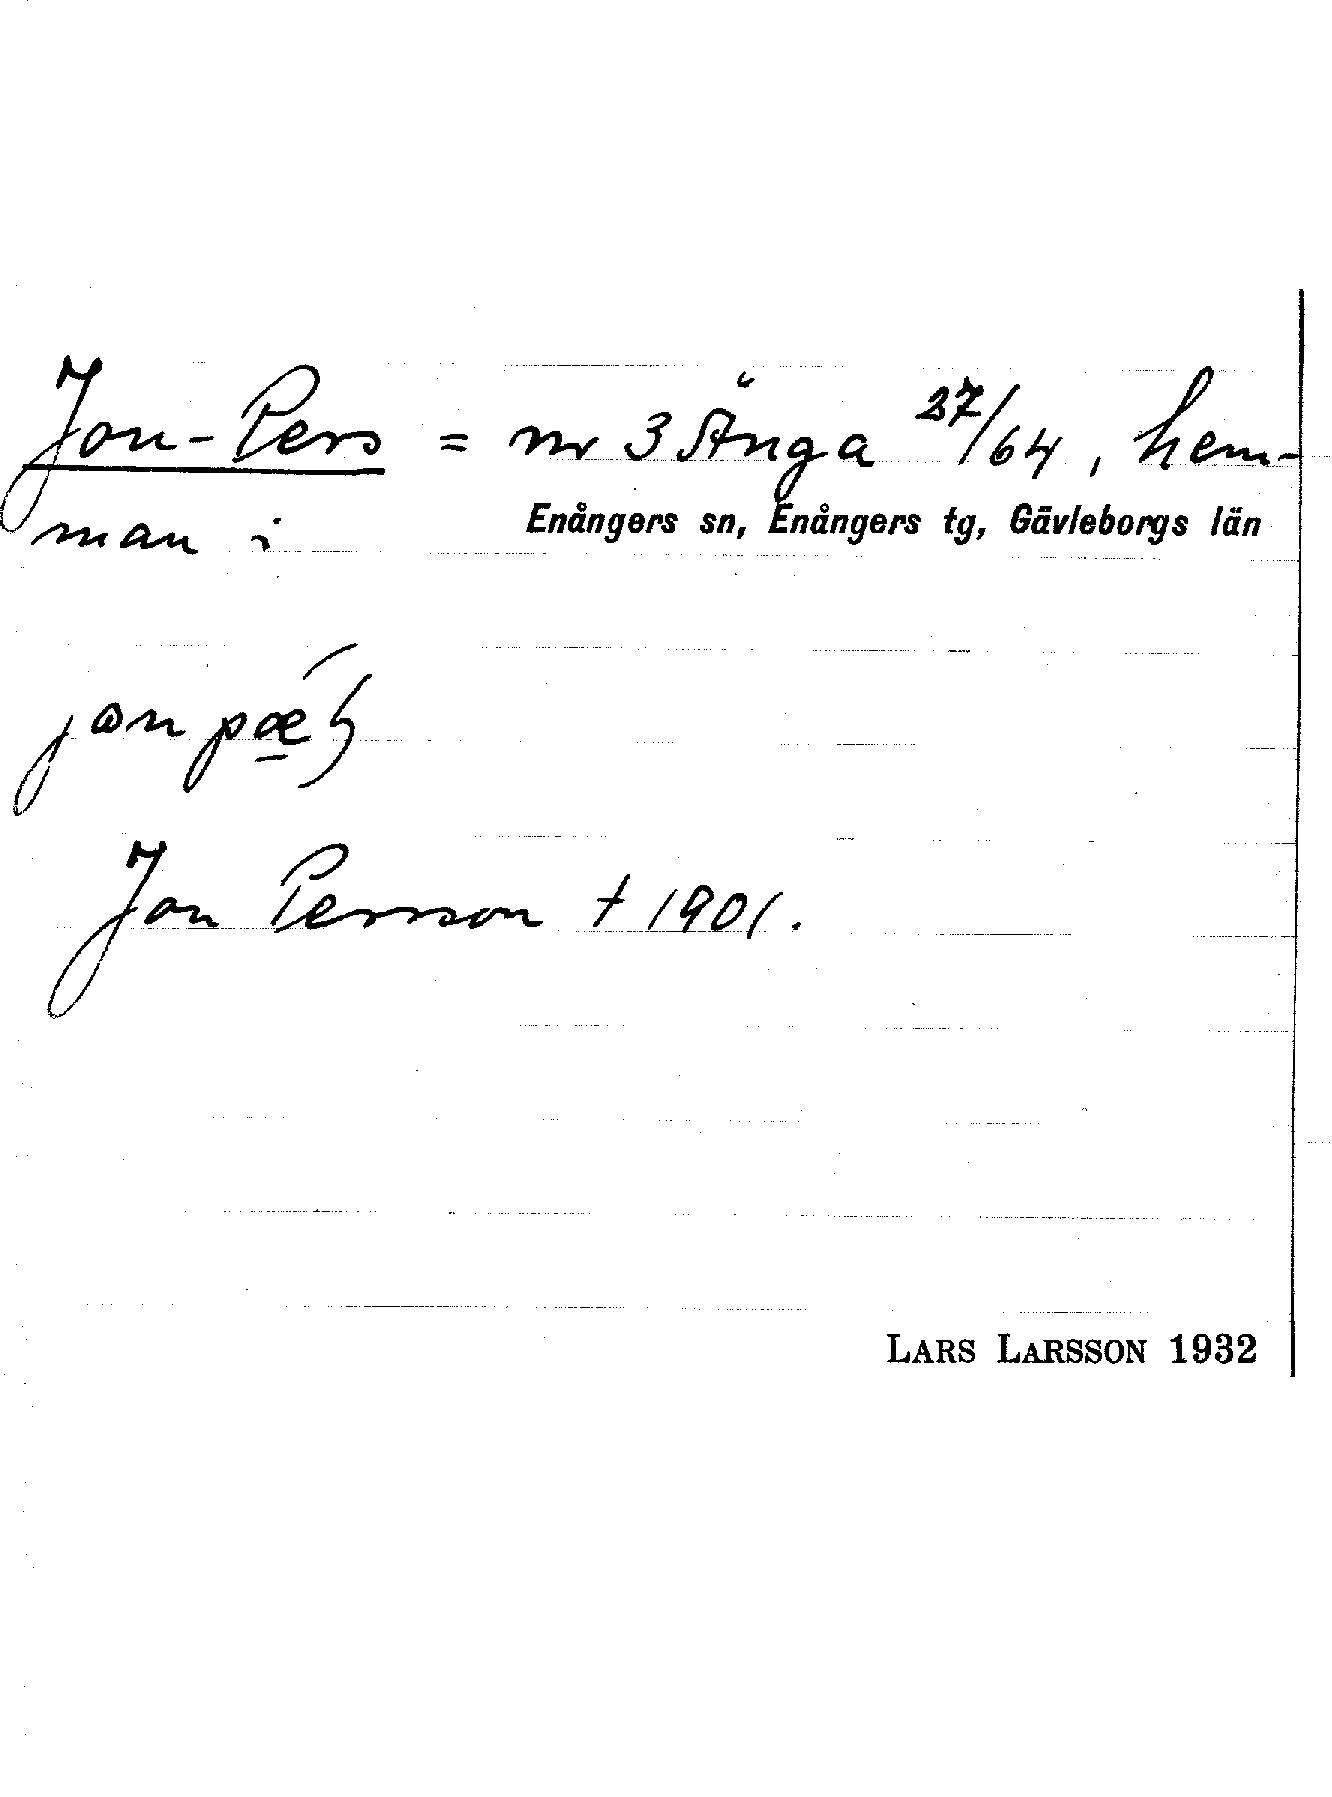 Jon-Pers = nr 3 Änga 27/64, hem-
man i Enångers sn, Enångers tg, Gävleborgs län
Jon Persson † 1901.
LARS LARSSON 1932